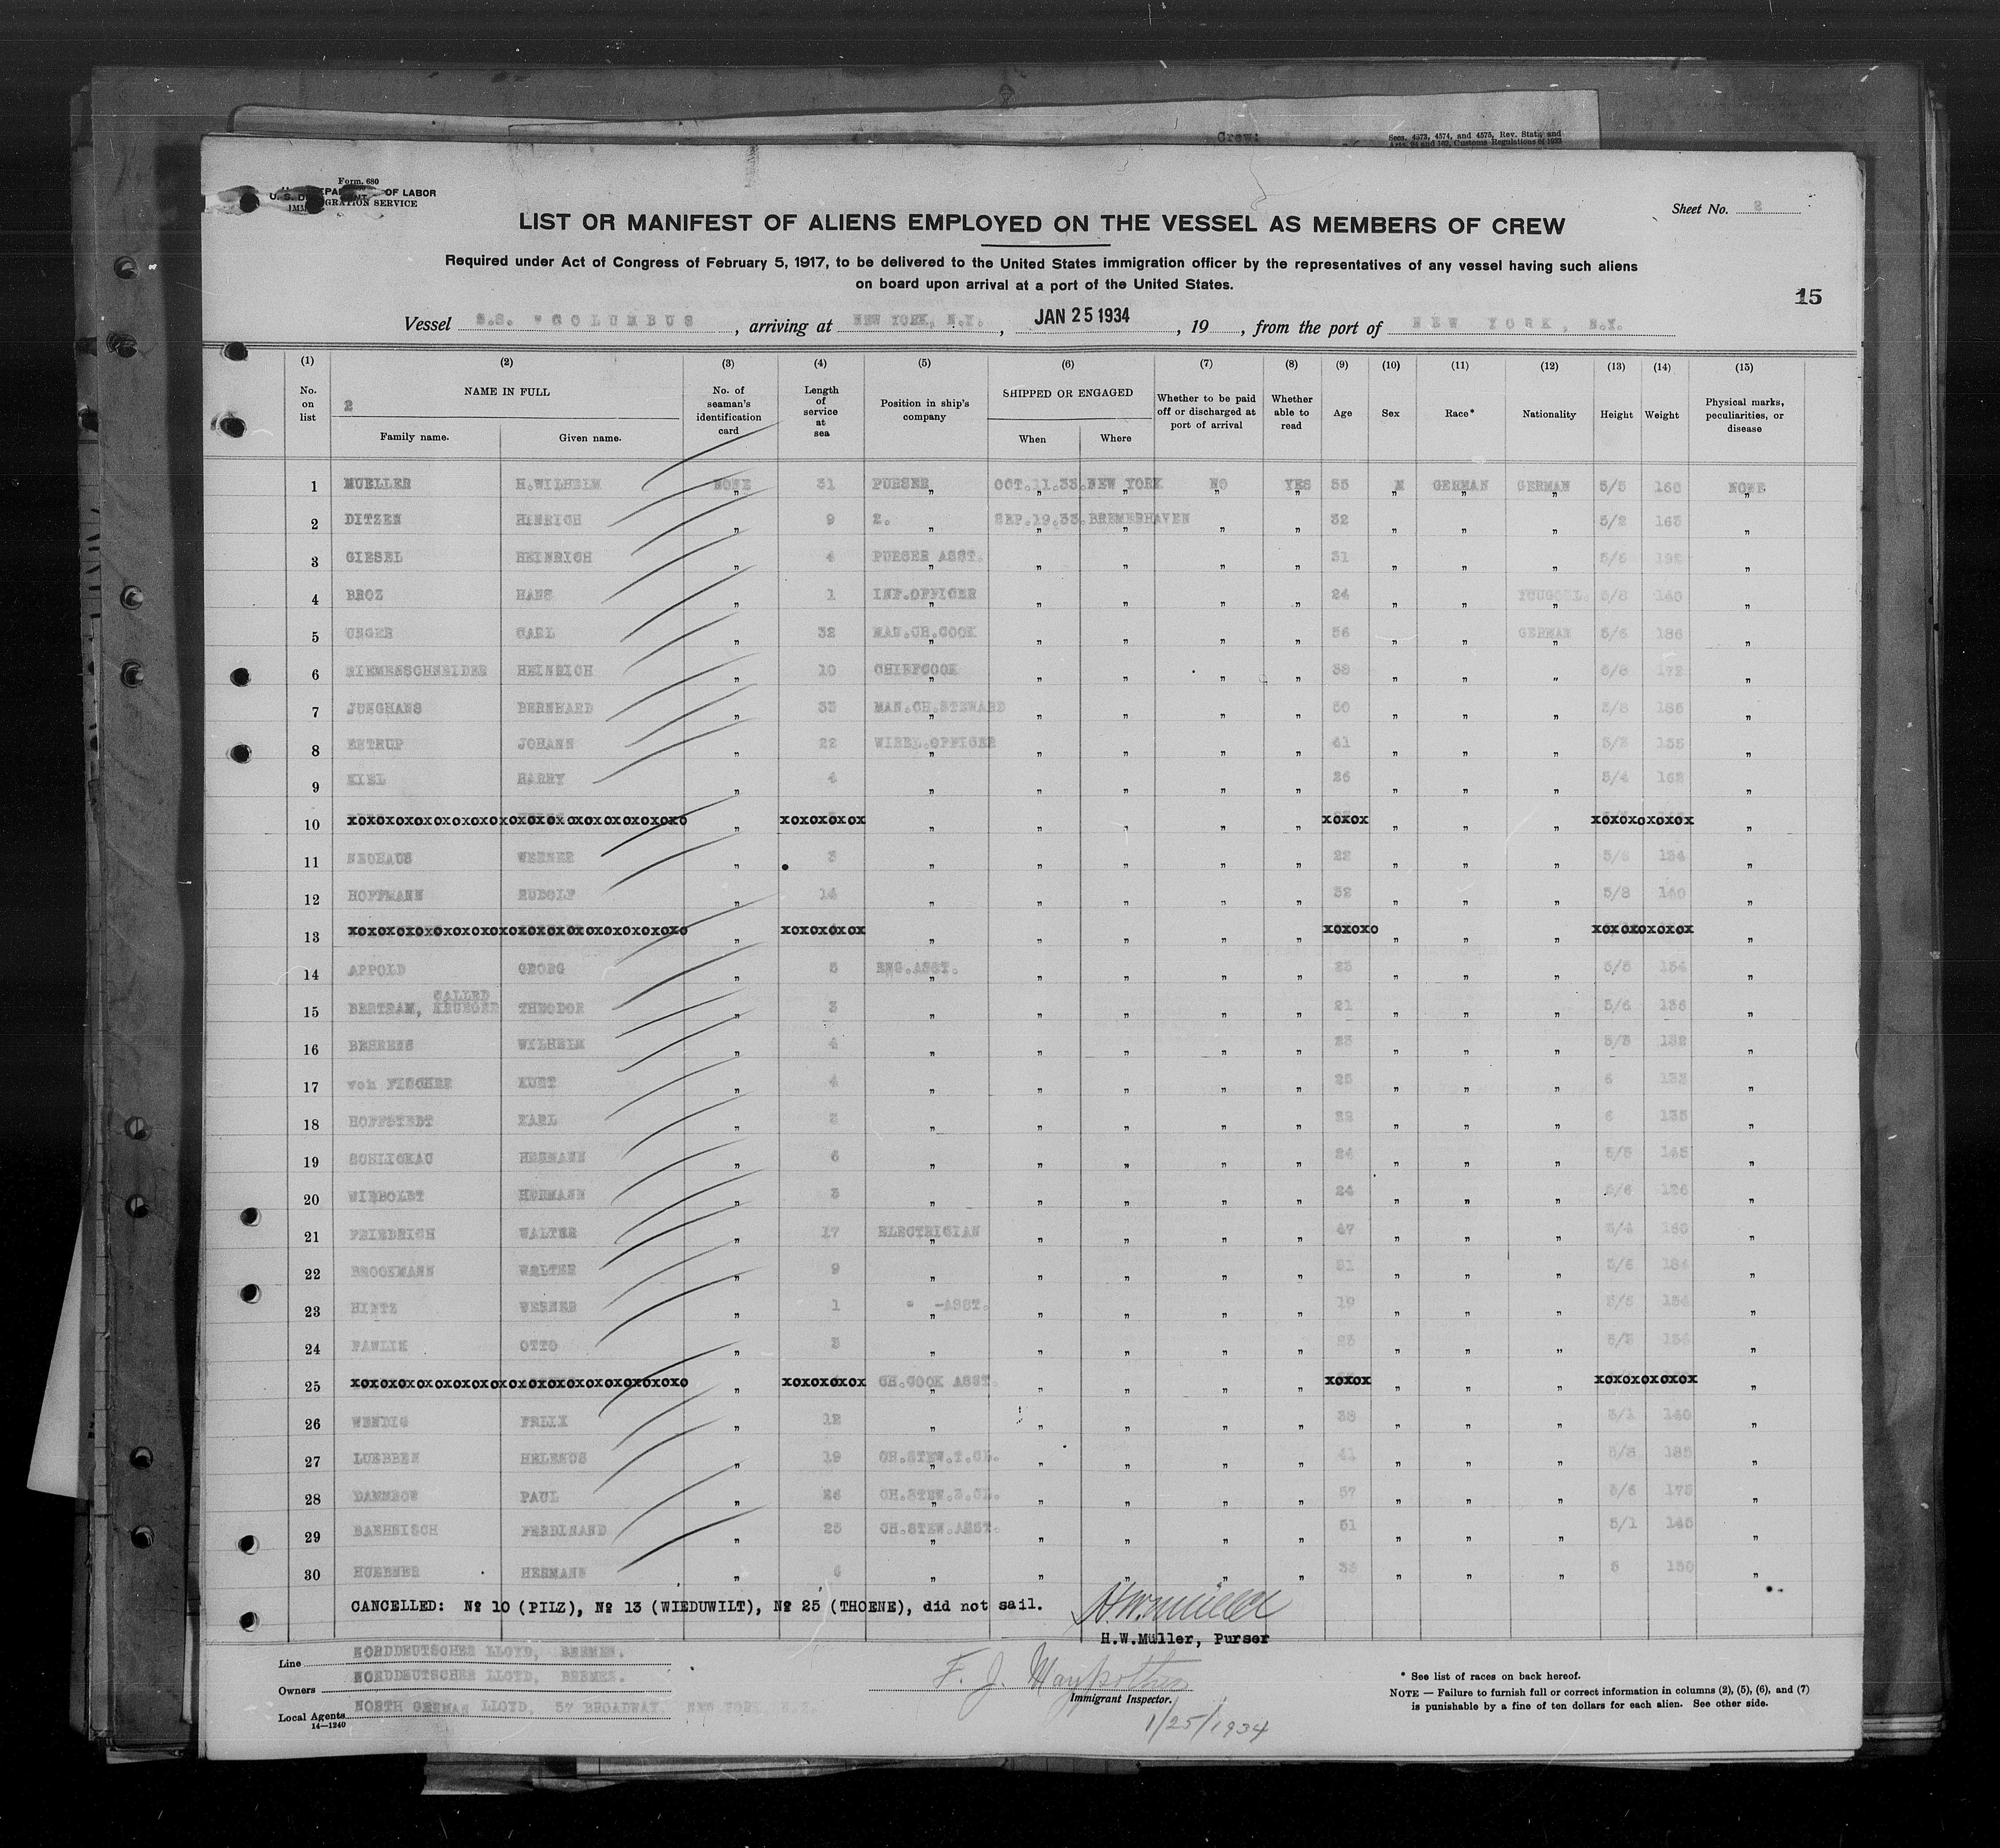 Crew:
Secs. 4573, 4574, and 4575, Rev. Stat., and
Arts. 94 and 162, Customs Regulations of 1923
Form 680
U. S. DEPARTMENT OF LABOR
IMMIGRATION SERVICE
Sheet No. 2
LIST OR MANIFEST OF ALIENS EMPLOYED ON THE VESSEL AS MEMBERS OF CREW
Required under Act of Congress of February 5, 1917, to be delivered to the United States immigration officer by the representatives of any vessel having such aliens
on board upon arrival at a port of the United States.
15
Vessel S.S. "COLUMBUS , arriving at NEW YORK, N.Y. , JAN 25 1934 , 19 , from the port of NEW YORK, N.Y.
(1) (2) (3) (4) (5) (6) (7) (8) (9) (10) (11) (12) (13) (14) (15)
No. on list NAME IN FULL No. of seaman's identification card Length of service at sea Position in ship's company SHIPPED OR ENGAGED Whether to be paid off or discharged at port of arrival Whether able to read Age Sex Race* Nationality Height Weight Physical marks, peculiarities, or disease
2
Family name. Given name. When Where
1 MUELLER H.WILHELM NONE 31 PURSER OCT.11.33. NEW YORK NO YES 55 M GERMAN GERMAN 5/5 160 NONE
2 DITZEN HINRICH " 9 2. " " " " " 32 " " " 5/2 163 "
SEP.19.33. BREMERHAVEN
3 GIESEL HEINRICH " 4 PURSER ASST. " " " " 31 " " " 5/6 192 "
4 BROZ HANS " 1 INF.OFFICER " " " " 24 " " YOUGOSL. 5/8 140 "
5 UNGER CARL " 32 MAN.CH.COOK " " " " 56 " " GERMAN 5/6 186 "
6 RIEMENSCHNEIDER HEINRICH " 10 CHIEFCOOK " " " " 38 " " " 5/8 172 "
7 JUNGHANS BERNHARD " 33 MAN.CH.STEWARD " " " " 50 " " " 5/8 185 "
8 ENTRUP JOHANN " 22 WIREL.OFFICER " " " " 41 " " " 5/8 155 "
9 KIEL HARRY " 4 " " " " " 26 " " " 5/4 162 "
10 xoxoxoxoxoxoxoxoxoxoxoxoxoxoxoxoxoxo " xoxoxoxox " " " " " xoxox " " " xoxoxoxoxox "
11 NEUHAUS WERNER " 3 " " " " " 22 " " " 5/8 134 "
12 HOFFMANN RUDOLF " 14 " " " " " 32 " " " 5/8 140 "
13 xoxoxoxoxoxoxoxoxoxoxoxoxoxoxoxoxoxo " xoxoxoxox " " " " " xoxoxo " " " xoxoxoxoxox "
14 APPOLD GEORG " 5 ENG.ASST. " " " " 23 " " " 5/5 154 "
CALLED
15 BERTRAM, KRUEGER THEODOR " 3 " " " " " 21 " " " 5/6 136 "
16 BEHRENS WILHELM " 4 " " " " " 23 " " " 5/5 132 "
17 von FISCHER KURT " 4 " " " " " 25 " " " 6 133 "
18 HOFFSTEDT KARL " 3 " " " " " 22 " " " 6 135 "
19 SCHLICKAU HERMANN " 6 " " " " " 24 " " " 5/5 145 "
20 WIEBOLDT HERMANN " 3 " " " " " 24 " " " 5/6 126 "
21 FRIEDRICH WALTER " 17 ELECTRICIAN " " " " 47 " " " 5/4 160 "
22 BROCKMANN WALTER " 9 " " " " " 31 " " " 5/6 184 "
23 HINTZ WERNER " 1 " -ASST. " " " " 19 " " " 5/6 154 "
24 PAWLIK OTTO " 3 " " " " " 23 " " " 5/5 154 "
25 xoxoxoxoxoxoxoxoxoxoxoxoxoxoxoxoxoxo " xoxoxoxox CH.COOK ASST. " " " " xoxox " " " xoxoxoxoxox "
26 WENDIG FELIX " 12 " " " " " 38 " " " 5/1 140 "
27 LUEBBEN HELENUS " 19 CH.STEW.T.CL. " " " " 41 " " " 5/8 185 "
28 DAMMBOW PAUL " 26 CH.STEW.3.CL. " " " " 57 " " " 5/6 175 "
29 BAEHNISCH FERDINAND " 25 CH.STEW.ASST. " " " " 51 " " " 5/1 145 "
30 HUEBNER HERMANN " 6 " " " " " 38 " " " 6 150 "
CANCELLED: No 10 (PILZ), No 13 (WIEDUWILT), No 25 (THOENE), did not sail.
H.W.Müller
H.W.Müller, Purser
Line NORDDEUTSCHER LLOYD, BREMEN.
Owners NORDDEUTSCHER LLOYD, BREMEN.
Local Agents NORTH GERMAN LLOYD, 57 BROADWAY, NEW YORK, N.Y.
14—1240
F. J.
Immigrant Inspector.
1/25/1934
* See list of races on back hereof.
NOTE — Failure to furnish full or correct information in columns (2), (5), (6), and (7)
is punishable by a fine of ten dollars for each alien. See other side.